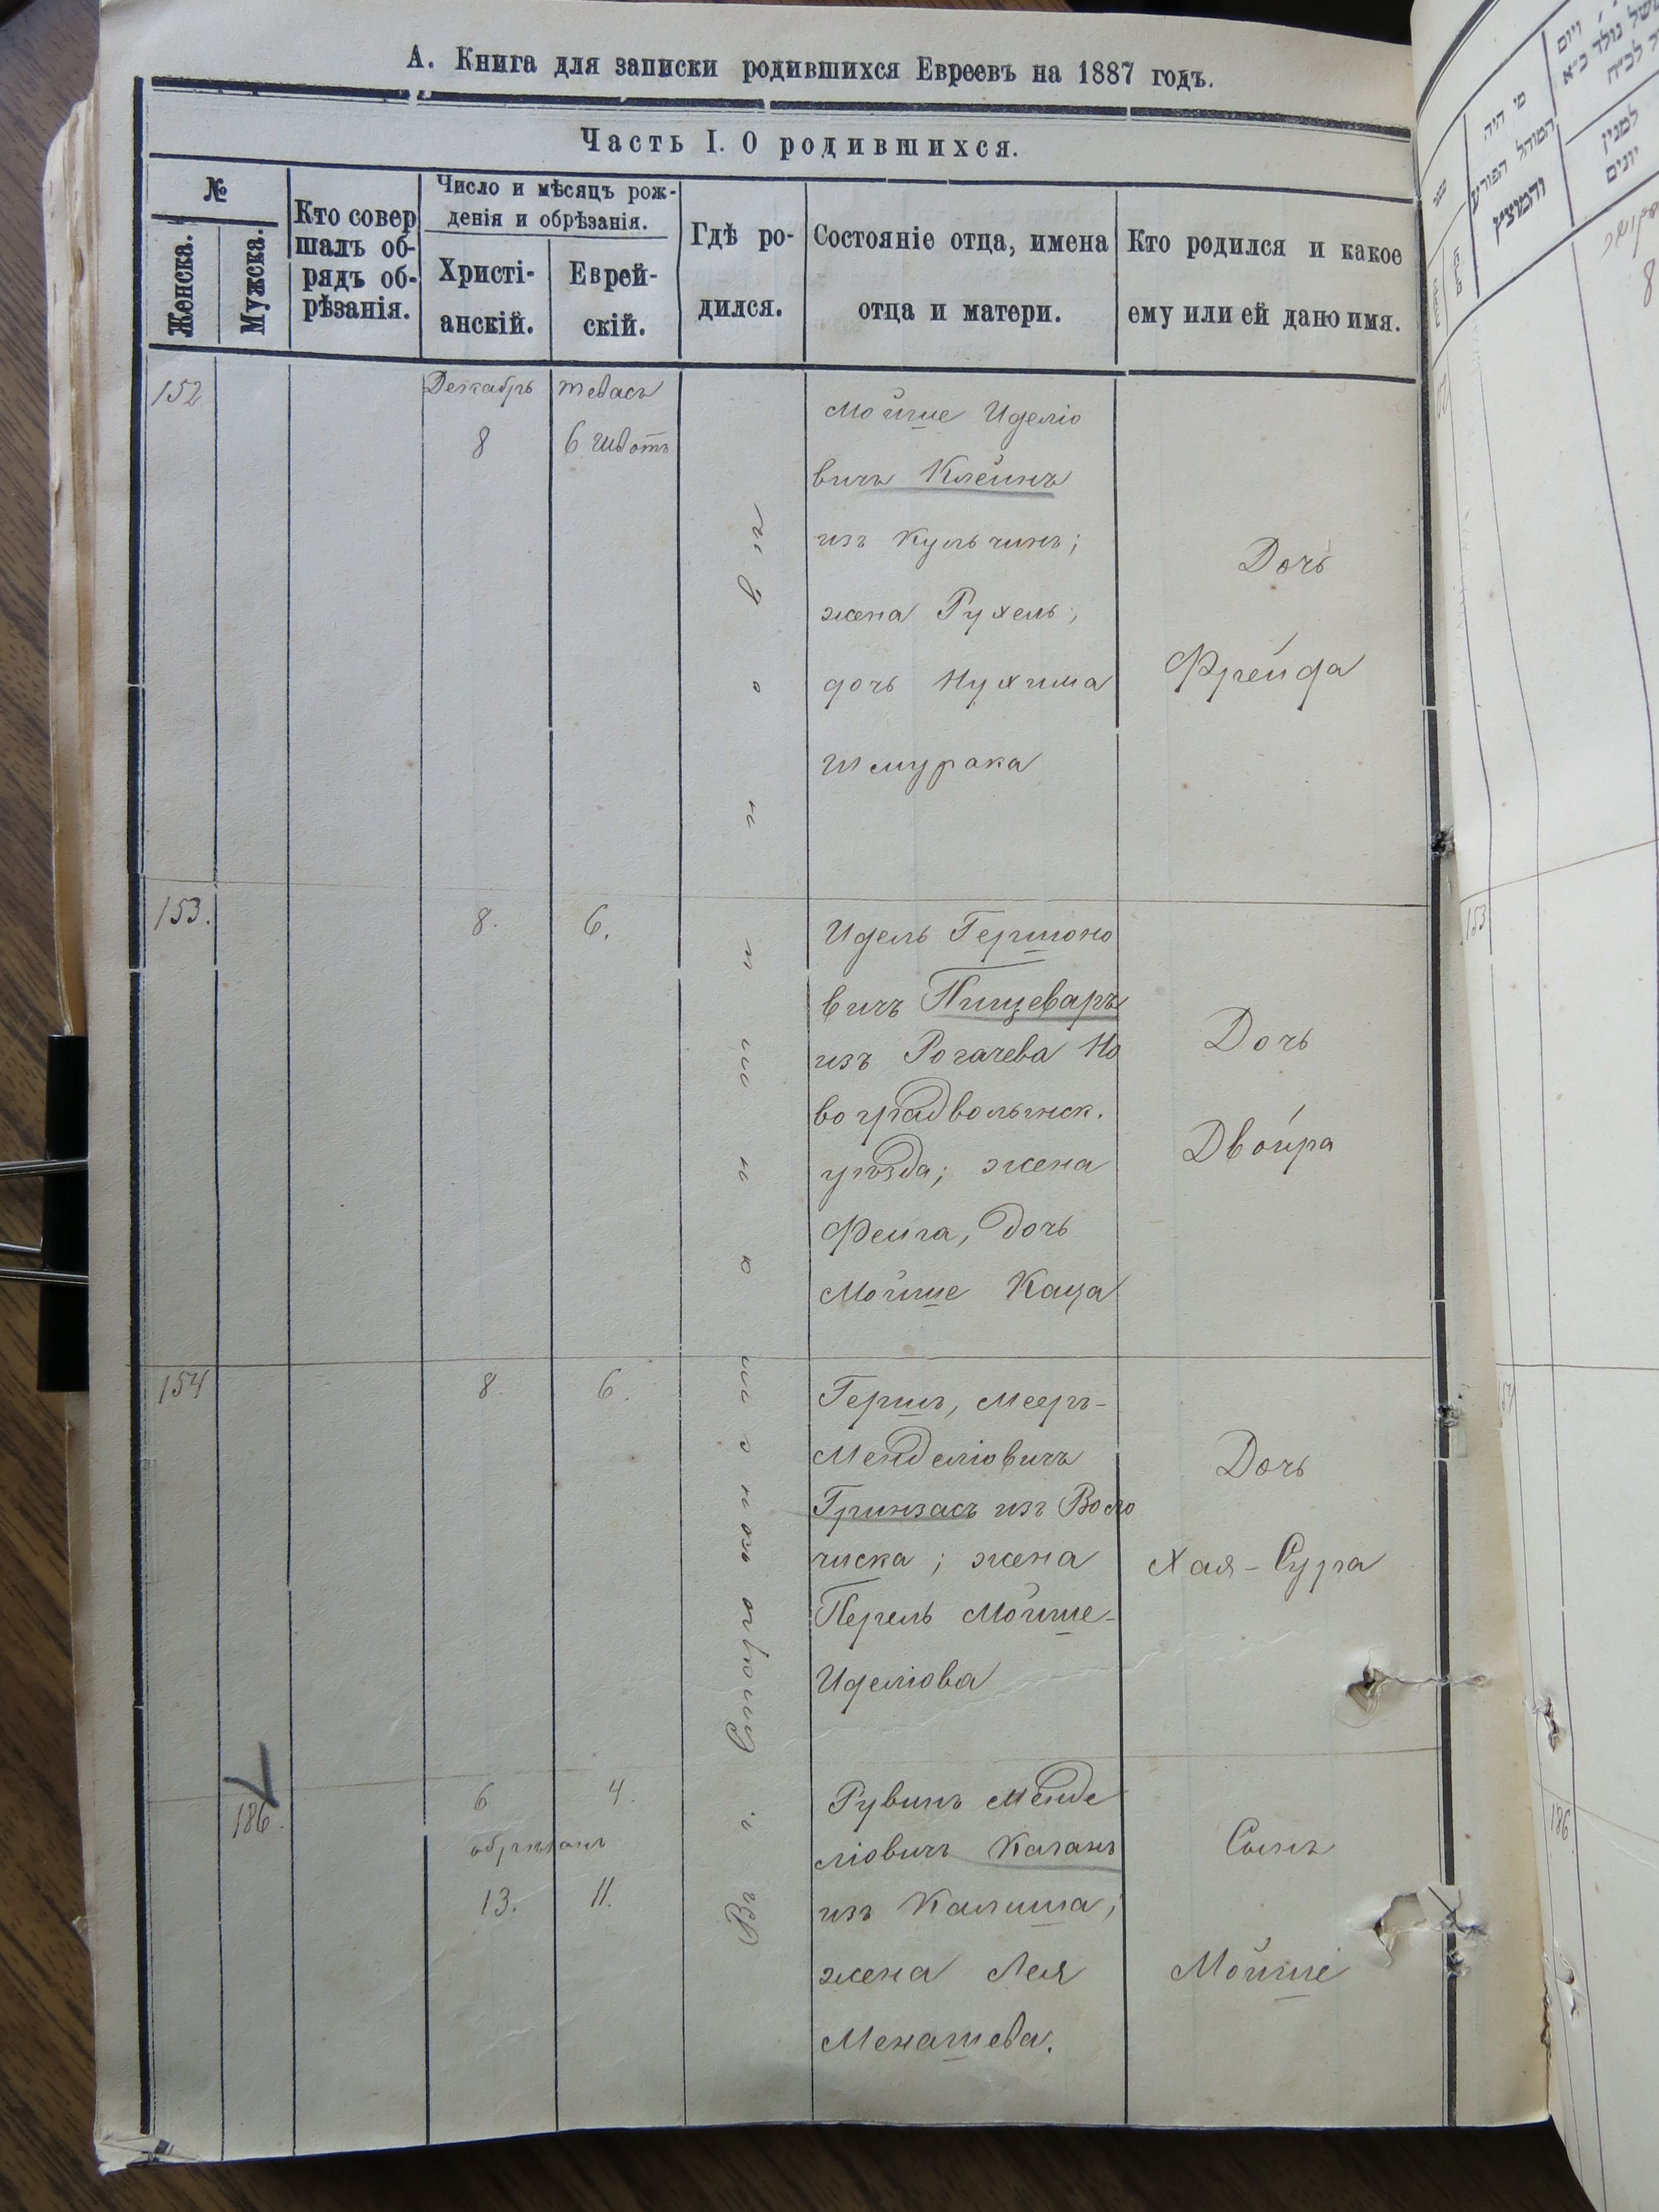 А. Книга для записки родившихся Евреевъ на 1887 годъ.
Часть I. О родившихся.
№
Женска.
Мужска.
Кто совер
шалъ об-
рядъ об-
рѣзанія.
Число и мѣсяцъ рож-
денія и обрѣзанія.
Христі-
анскій.
Еврей-
скій.
Гдѣ ро-
дился.
Состояніе отца, имена
отца и матери.
Кто родился и какое
ему или ей дано имя.
152
Декабрь
8
6
Мойше Иделіо
вичъ Клейнъ
изъ Кульчинъ;
жена Рухель,
дочь Нухима
Шмурака
Дочь
Фрейда
153.
8.
6.
Идель Гершоно
вичъ Пищеваръ
изъ Рогачева Но
воградволынск.
уѣзда; жена
Фейга, дочь
Мойше Каца
Дочь
Двойра
154
8.
6.
Гершъ, Мееръ-
Менделіовичъ
Гринзасъ изъ Воло
чиска; жена
Перель Мойше-
Иделіова
Дочь
Хая-Сура
186.
6
4.
обрѣзанъ
13.
11.
Рувинъ Менде
ліовичъ Каганъ
изъ Калиша;
жена Лея
Менашева.
Сынъ
Мойше
מי היה
המוהל הפורע
והמוציץ
למנין
יונים
153
154
186